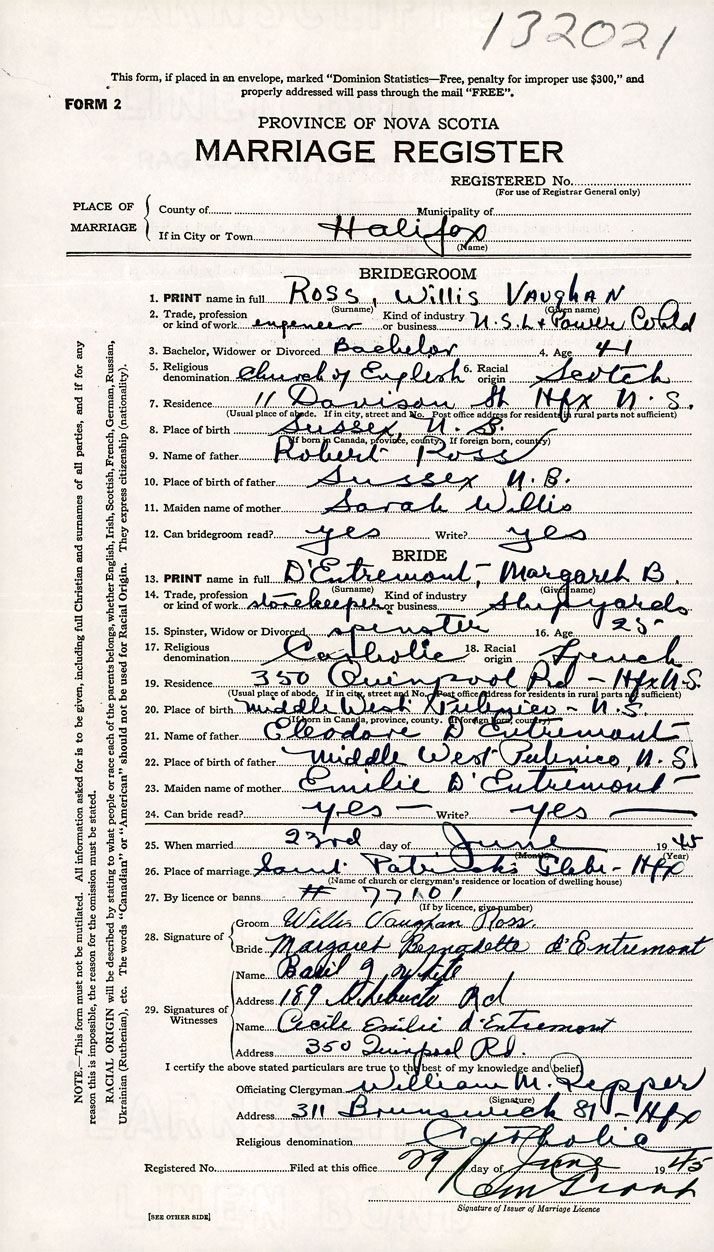 132021
This form, if placed in an envelope, marked "Dominion Statistics—Free, penalty for improper use $300," and
properly addressed will pass through the mail "FREE".
FORM 2
PROVINCE OF NOVA SCOTIA
MARRIAGE REGISTER
REGISTERED No.
(For use of Registrar General only)
PLACE OF MARRIAGE
County of Municipality of
If in City or Town Halifax
(Name)
BRIDEGROOM
1. PRINT name in full Ross, Willis Vaughan
(Surname) (Given name)
2. Trade, profession or kind of work engeneer Kind of industry or business N.S.L + Power Co Ltd
3. Bachelor, Widower or Divorced Bachelor 4. Age 41
5. Religious denomination Church of English 6. Racial origin Scotch
7. Residence 11 Davison St Hfx N.S.
(Usual place of abode. If in city, street and No. Post office address for residents in rural parts not sufficient)
8. Place of birth Sussex, N.B.
(If born in Canada, province, county. If foreign born, country)
9. Name of father Robert Ross
10. Place of birth of father Sussex N.B.
11. Maiden name of mother Sarah Willis
12. Can bridegroom read? yes Write? yes
BRIDE
13. PRINT name in full D'Entremont, Margaret B.
(Surname) (Given name)
14. Trade, profession or kind of work storekeeper Kind of industry or business Shipyards
15. Spinster, Widow or Divorced spinster 16. Age 25
17. Religious denomination Catholic 18. Racial origin French
19. Residence 350 Quinpool Rd - Hfx N.S.
(Usual place of abode. If in city, street and No. Post office address for residents in rural parts not sufficient)
20. Place of birth Middle West Pubnico - N.S.
(If born in Canada, province, county. If foreign born, country)
21. Name of father Eleodore D'Entremont
22. Place of birth of father Middle West Pubnico, N.S.
23. Maiden name of mother Emilie D'Entremont
24. Can bride read? yes — Write? yes
25. When married 23rd day of June 1945
(Month) (Year)
26. Place of marriage Saint Patrick's Glebe - Hfx
(Name of church or clergyman's residence or location of dwelling house)
27. By licence or banns # 77101
(If by licence, give number)
28. Signature of
Groom Willis Vaughan Ross.
Bride Margaret Bernadette d'Entremont
29. Signatures of Witnesses
Name Basil J White
Address 189 Rd
Name Cecile Emilie d'Entremont
Address 350 Quinpool Rd.
I certify the above stated particulars are true to the best of my knowledge and belief.
Officiating Clergyman William M. Pepper
(Signature)
Address 311 Brunswick St - Hfx
Religious denomination Catholic
Registered No. Filed at this office 29 day of June 1945
Grant
Signature of Issuer of Marriage Licence
[SEE OTHER SIDE]
NOTE.—This form must not be mutilated. All information asked for is to be given, including full Christian and surnames of all parties, and if for any
reason this is impossible, the reason for the omission must be stated.
RACIAL ORIGIN will be described by stating to what people or race each of the parents belongs, whether English, Irish, Scottish, French, German, Russian,
Ukrainian (Ruthenian), etc. The words "Canadian" or "American" should not be used for Racial Origin. They express citizenship (nationality).